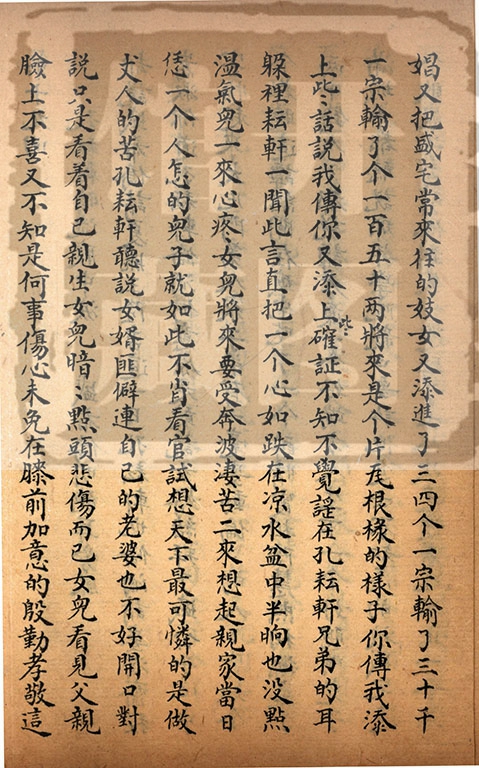 娼又把盛宅常來往的妓女又添進了三四个一宗輸了三十千
一宗輸了个一百五十两將來是个片瓦根椽的樣子你傳我添
上些〻話說我傳你又添上確証不知不覺謡在孔耘軒兄弟的耳
些〻
躱裡耘軒一聞此言直把一个心如跌在凉水盆中半晌也没點
温氣兒一來心疼女兒將來要受奔波凄苦二來想起親家當日
恁一个人怎的兒子就如此不肖看官試想天下最可憐的是做
丈人的苦孔耘軒聽說女婿匪僻連自己的老婆也不好開口對
說只是看着自己親生女兒暗〻點頭悲傷而已女兒看見父親
臉上不喜又不知是何事傷心未免在膝前加意的殷勤孝敬這